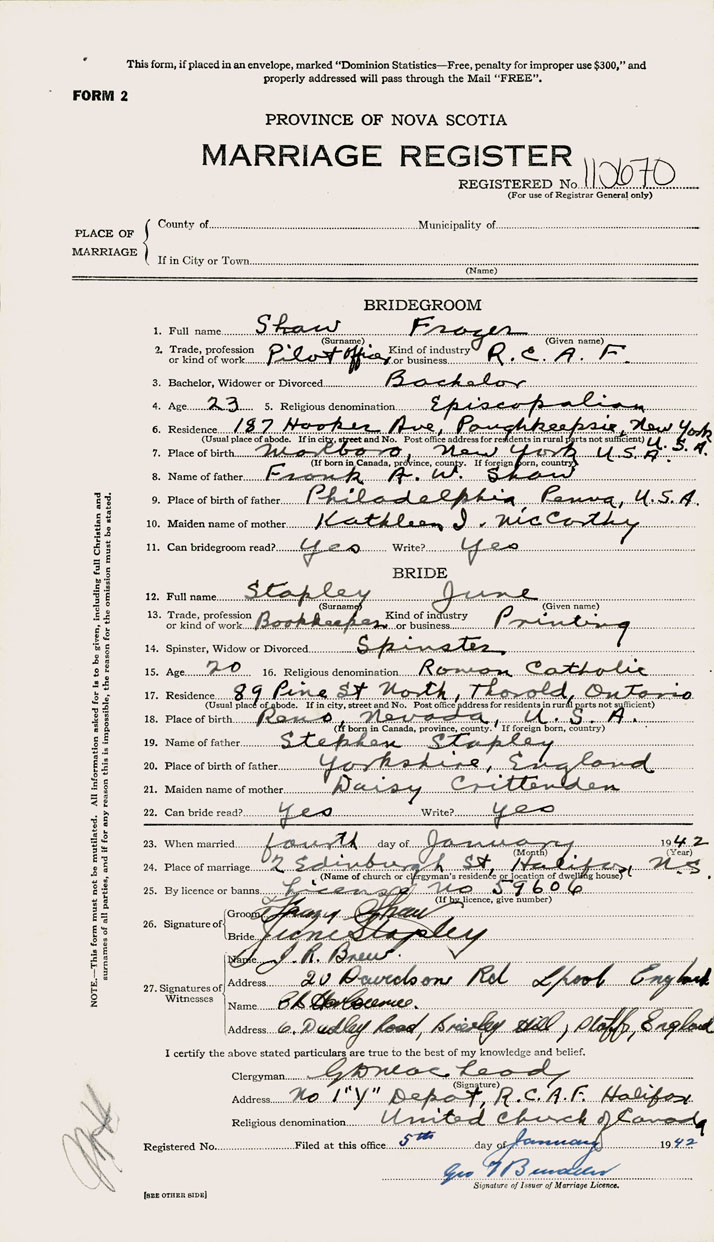 This form, if placed in an envelope, marked "Dominion Statistics—Free, penalty for improper use $300," and
properly addressed will pass through the Mail "FREE".
FORM 2
PROVINCE OF NOVA SCOTIA
MARRIAGE REGISTER
REGISTERED No. 110670
(For use of Registrar General only)
PLACE OF MARRIAGE
County of Municipality of
If in City or Town
(Name)
BRIDEGROOM
1. Full name Shaw Frazer
(Surname) (Given name)
2. Trade, profession or kind of work Pilot Officer Kind of industry or business R.C.A.F.
3. Bachelor, Widower or Divorced Bachelor
4. Age 23 5. Religious denomination Episcopalian
6. Residence 187 Hooker Ave, Poughkeepsie, New York U.S.A.
(Usual place of abode. If in city, street and No. Post office address for residents in rural parts not sufficient)
7. Place of birth Marlboro, New York U.S.A.
(If born in Canada, province, county. If foreign born, country)
8. Name of father Frank A. W. Shaw
9. Place of birth of father Philadelphia Penna, U.S.A.
10. Maiden name of mother Kathleen I. McCarthy
11. Can bridegroom read? Yes Write? Yes
BRIDE
12. Full name Stapley June
(Surname) (Given name)
13. Trade, profession or kind of work Bookkeeper Kind of industry or business Printing
14. Spinster, Widow or Divorced Spinster
15. Age 20 16. Religious denomination Roman Catholic
17. Residence 89 Pine St North, Thorold, Ontario
(Usual place of abode. If in city, street and No. Post office address for residents in rural parts not sufficient)
18. Place of birth Reno, Nevada, U.S.A.
(If born in Canada, province, county. If foreign born, country)
19. Name of father Stephen Stapley
20. Place of birth of father Yorkshire, England
21. Maiden name of mother Daisy Crittenden
22. Can bride read? Yes Write? Yes
23. When married fourth day of January 1942
(Month) (Year)
24. Place of marriage 2 Edinburgh St, Halifax, N.S.
(Name of church or clergyman's residence or location of dwelling house)
25. By licence or banns License No 59606
(If by licence, give number)
26. Signature of
Groom Shaw
Bride June Stapley
27. Signatures of Witnesses
Name J. R. Brew
Address 20 Davidson Rd Lpool England
Name
Address 6. Dudley Road, Brierley Hill, Staffs, England
I certify the above stated particulars are true to the best of my knowledge and belief.
Clergyman
(Signature)
Address No 1 "Y" Depot, R.C.A.F. Halifax
Religious denomination United Church of Canada
Registered No. Filed at this office 5th day of January 1942
Geo
Signature of Issuer of Marriage Licence.
[SEE OTHER SIDE]
NOTE.—This form must not be mutilated. All information asked for is to be given, including full Christian and
surnames of all parties, and if for any reason this is impossible, the reason for the omission must be stated.